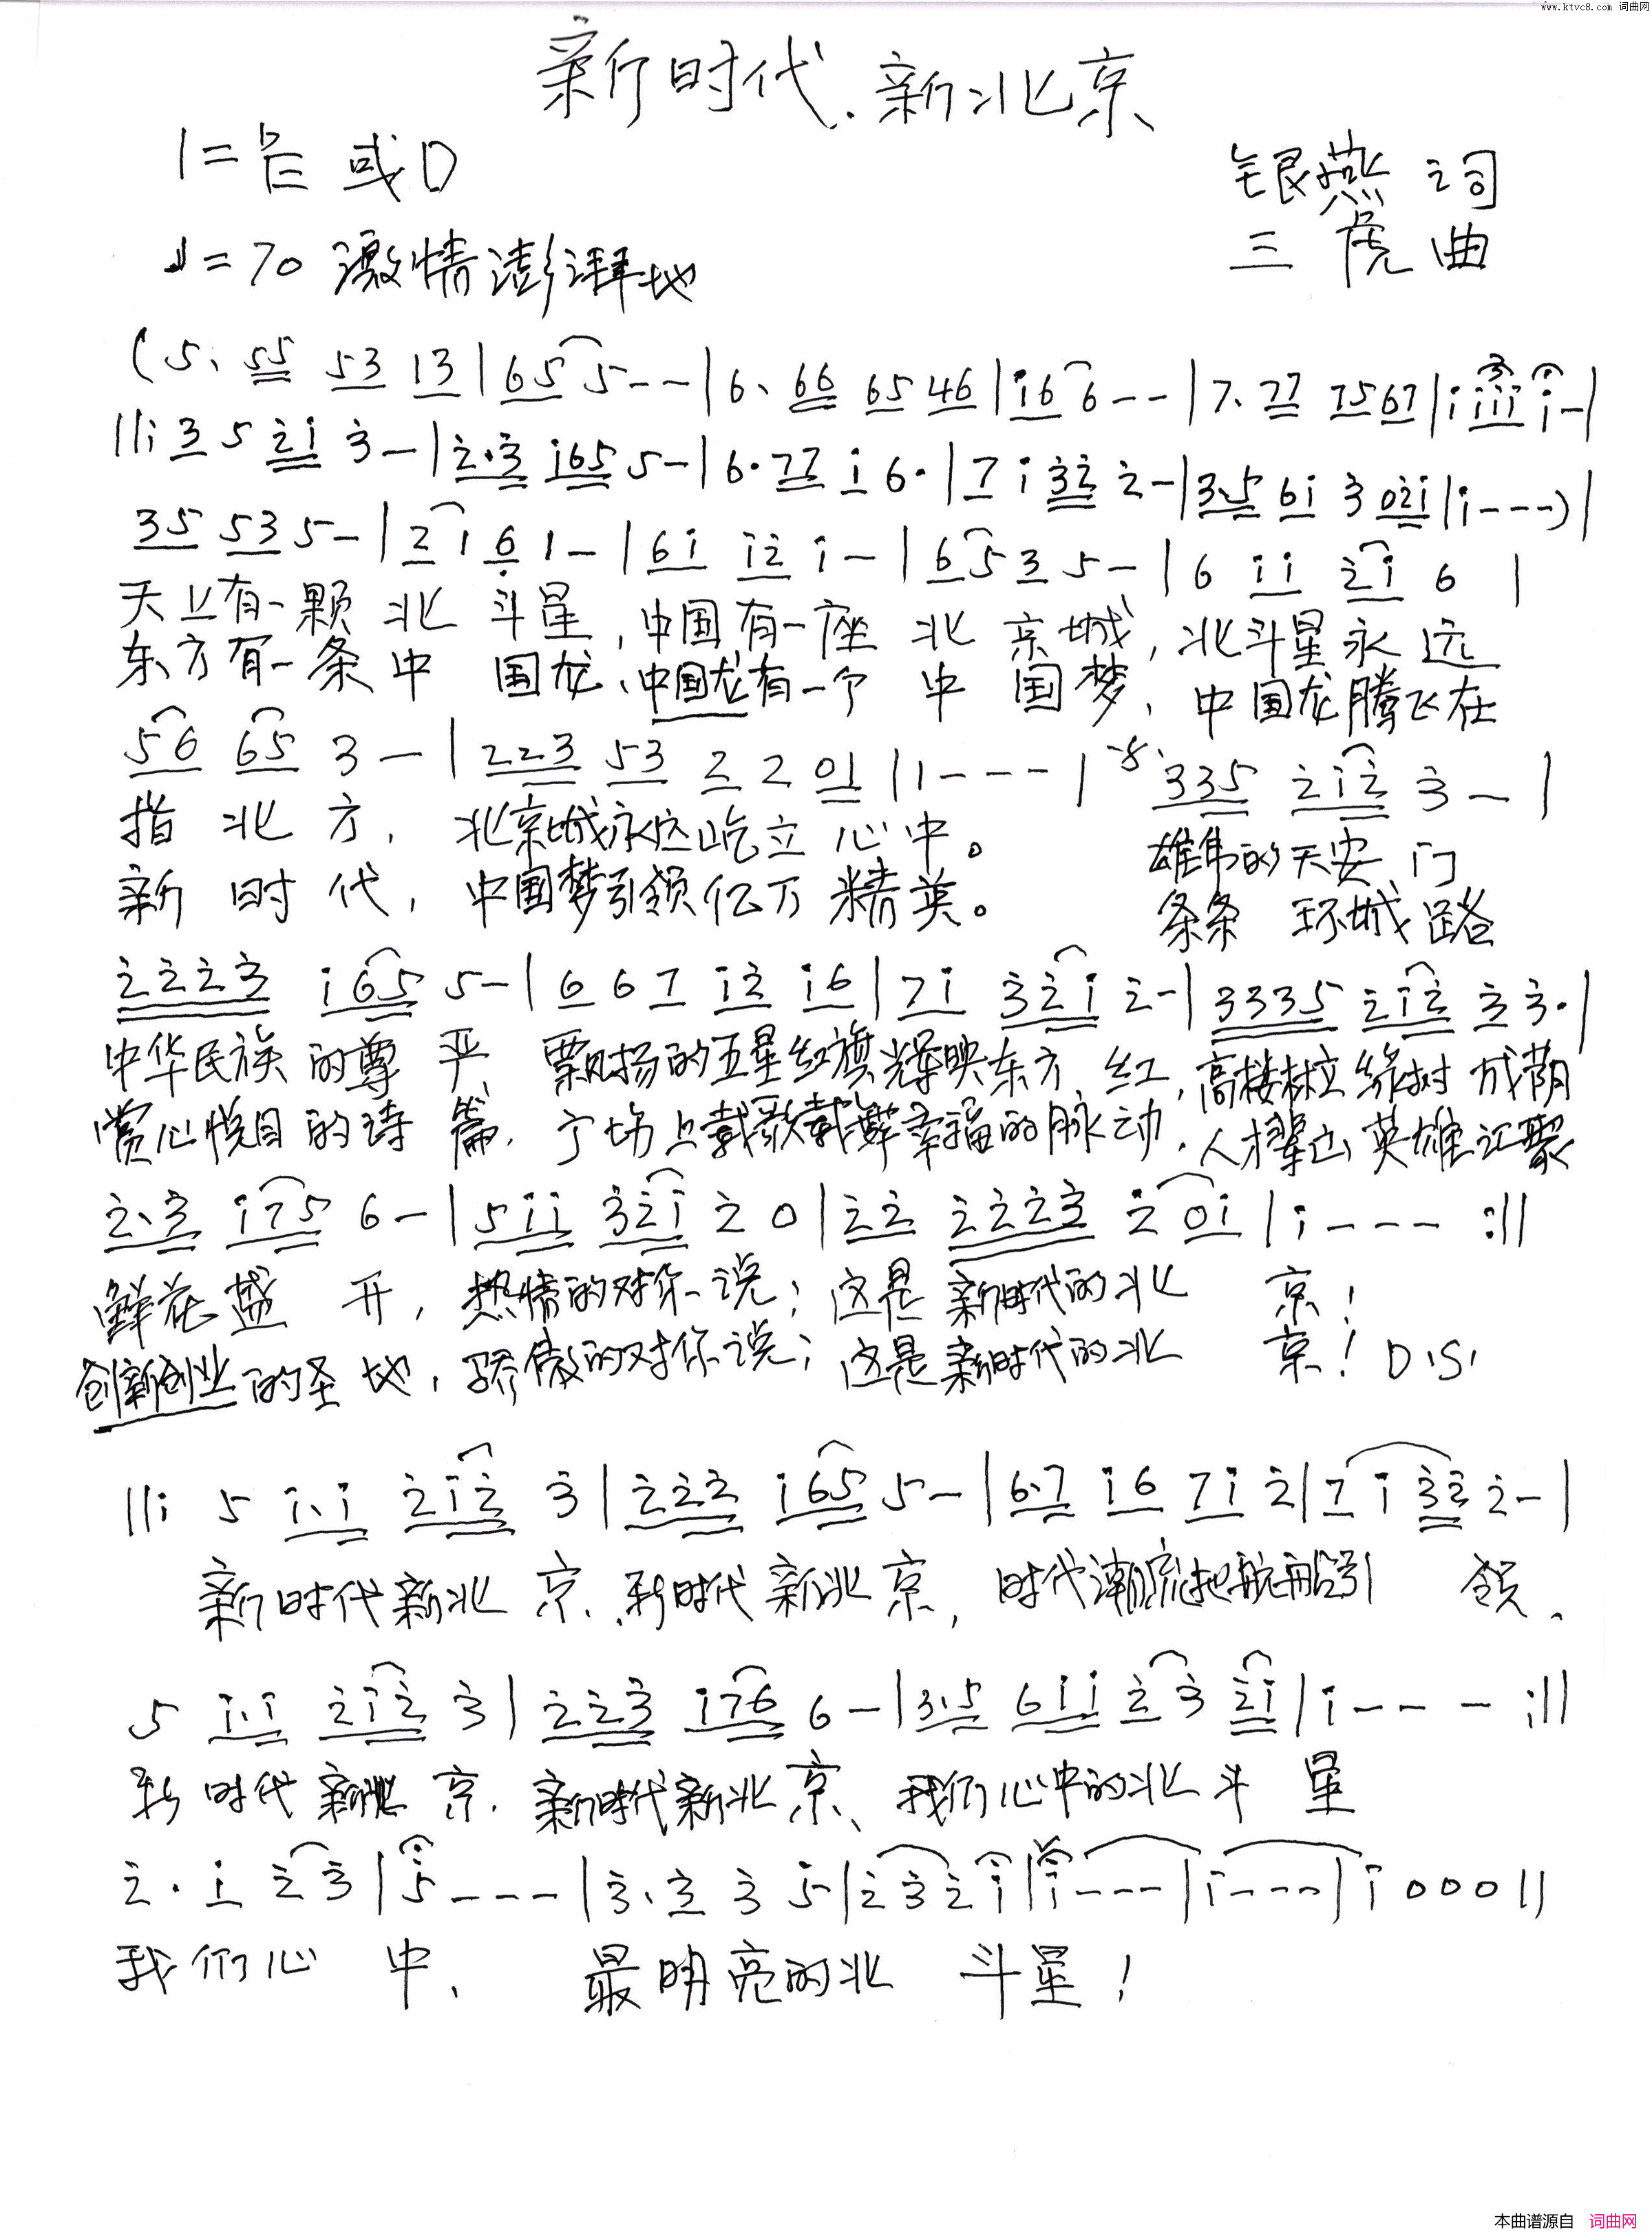 www.ktvc8.com 词曲网
新时代.新北京
1=♭E 或D
银燕 词
♩=70 激情澎湃地
三虎曲
(5. 55 53 13|65 5--|6. 66 65 46|i6 6--|7. 77 7567|i iii i-|
||: 3 5 2i 3-|2.3 i65 5-|6.77 i 6.|7 i 32 2-|3.5 6i 3 02i|i---)|
35 53 5-|2 1 6 1-|6i i2 i-|65 3 5-|6 ii 2i 6 |
天上有一颗 北 斗星,中国有一座 北 京城,北斗星永远
东方有一条中 国龙、中国龙有一个 中 国梦,中国龙腾飞在
56 65 3-|223 53 2 2 01|1---| 335 2i2 3-|
指 北 方, 北京城永远屹立心中。 雄伟的天安门
新 时 代, 中国梦引领亿万精英。 条条 环城路
2223 i65 5-|6 6 7 i2 i6|7i 32i 2-|3335 2i2 3 3.|
中华民族的尊 严 飘扬的五星红旗辉映东方红,高楼林立绿树成荫
赏心悦目的诗 篇. 广场上载歌载舞幸福的脉动.人才辈出英雄汇聚
2.3 i75 6-|5ii 32i 2 0|22 2223 2 0i|i--- :||
鲜花盛 开, 热情的对你说;这是 新时代的北 京!
创新创业的圣地,骄傲的对你说;这是新时代的北 京! D.S.
||: 5 i.i 2i2 3|222 i65 5-|6.7 i6 7i 2|7 i 32 2-|
新时代新北 京.新时代新北京,时代潮流起航船引 领.
5 i.i 2i2 3|223 i76 6-|3.5 6ii 2 3 2i|i--- :||
新时代新北 京.新时代新北京、我们心中的北斗 星
2. i 2 3|5---|3. 3 3 5|2 3 2 i|i---|i---|i 0 0 0||
我们心 中、 最明亮的北 斗星!
本曲谱源自 词曲网